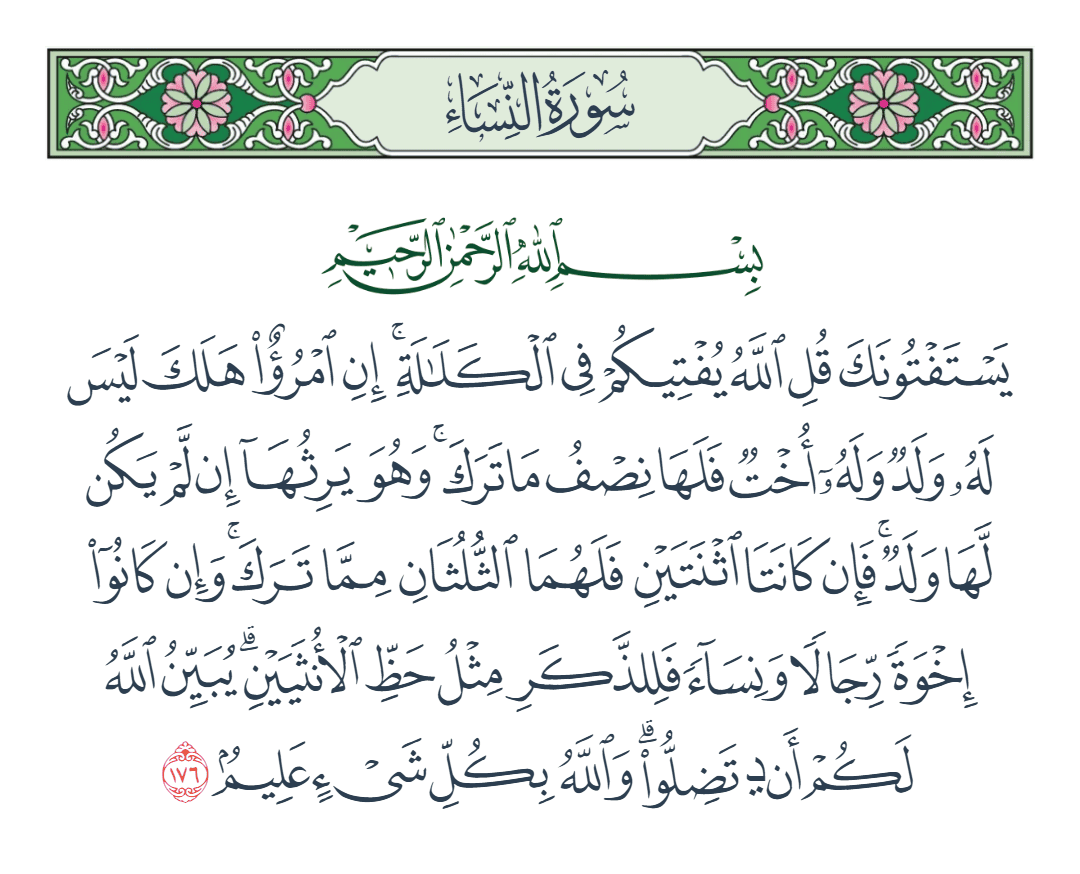 سُورَةُ النِّسَاءِ
بِسْمِ ٱللَّهِ ٱلرَّحْمَٰنِ ٱلرَّحِيمِ
يَسْتَفْتُونَكَ قُلِ ٱللَّهُ يُفْتِيكُمْ فِى ٱلْكَلَـٰلَةِ ۚ إِنِ ٱمْرُؤٌا۟ هَلَكَ لَيْسَ
لَهُۥ وَلَدٌ وَلَهُۥٓ أُخْتٌ فَلَهَا نِصْفُ مَا تَرَكَ ۚ وَهُوَ يَرِثُهَآ إِن لَّمْ يَكُن
لَّهَا وَلَدٌ ۚ فَإِن كَانَتَا ٱثْنَتَيْنِ فَلَهُمَا ٱلثُّلُثَانِ مِمَّا تَرَكَ ۚ وَإِن كَانُوٓا۟
إِخْوَةً رِّجَالًا وَنِسَآءً فَلِلذَّكَرِ مِثْلُ حَظِّ ٱلْأُنثَيَيْنِ ۗ يُبَيِّنُ ٱللَّهُ
لَكُمْ أَن تَضِلُّوا۟ ۗ وَٱللَّهُ بِكُلِّ شَىْءٍ عَلِيمٌۢ ١٧٦